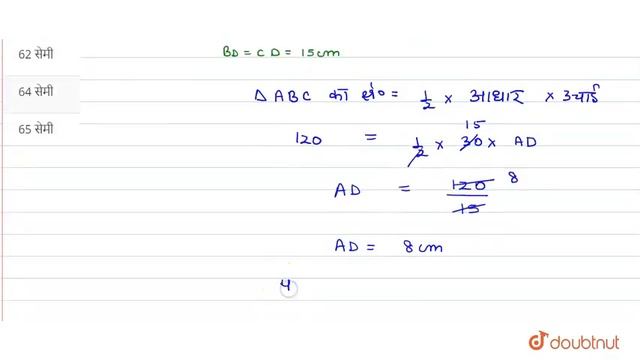 62 सेमी
64 सेमी
65 सेमी
BD = CD = 15cm
Δ ABC का क्षे० = 1/2 × आधार × ऊंचाई
15
120 = 1/2 × 30 × AD
AD = 120/15 8
AD = 8cm
4
doubtnut